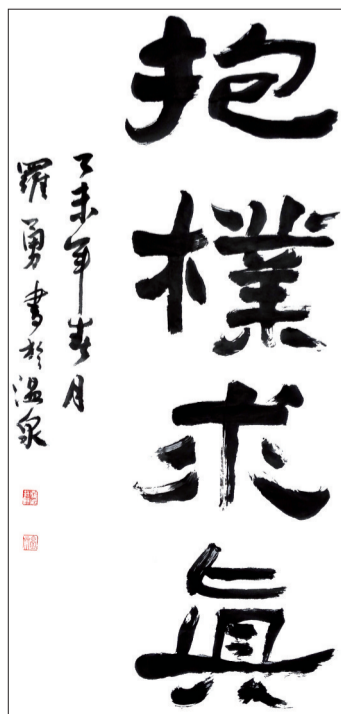 抱樸求眞
乙未年春月
羅勇書於温泉